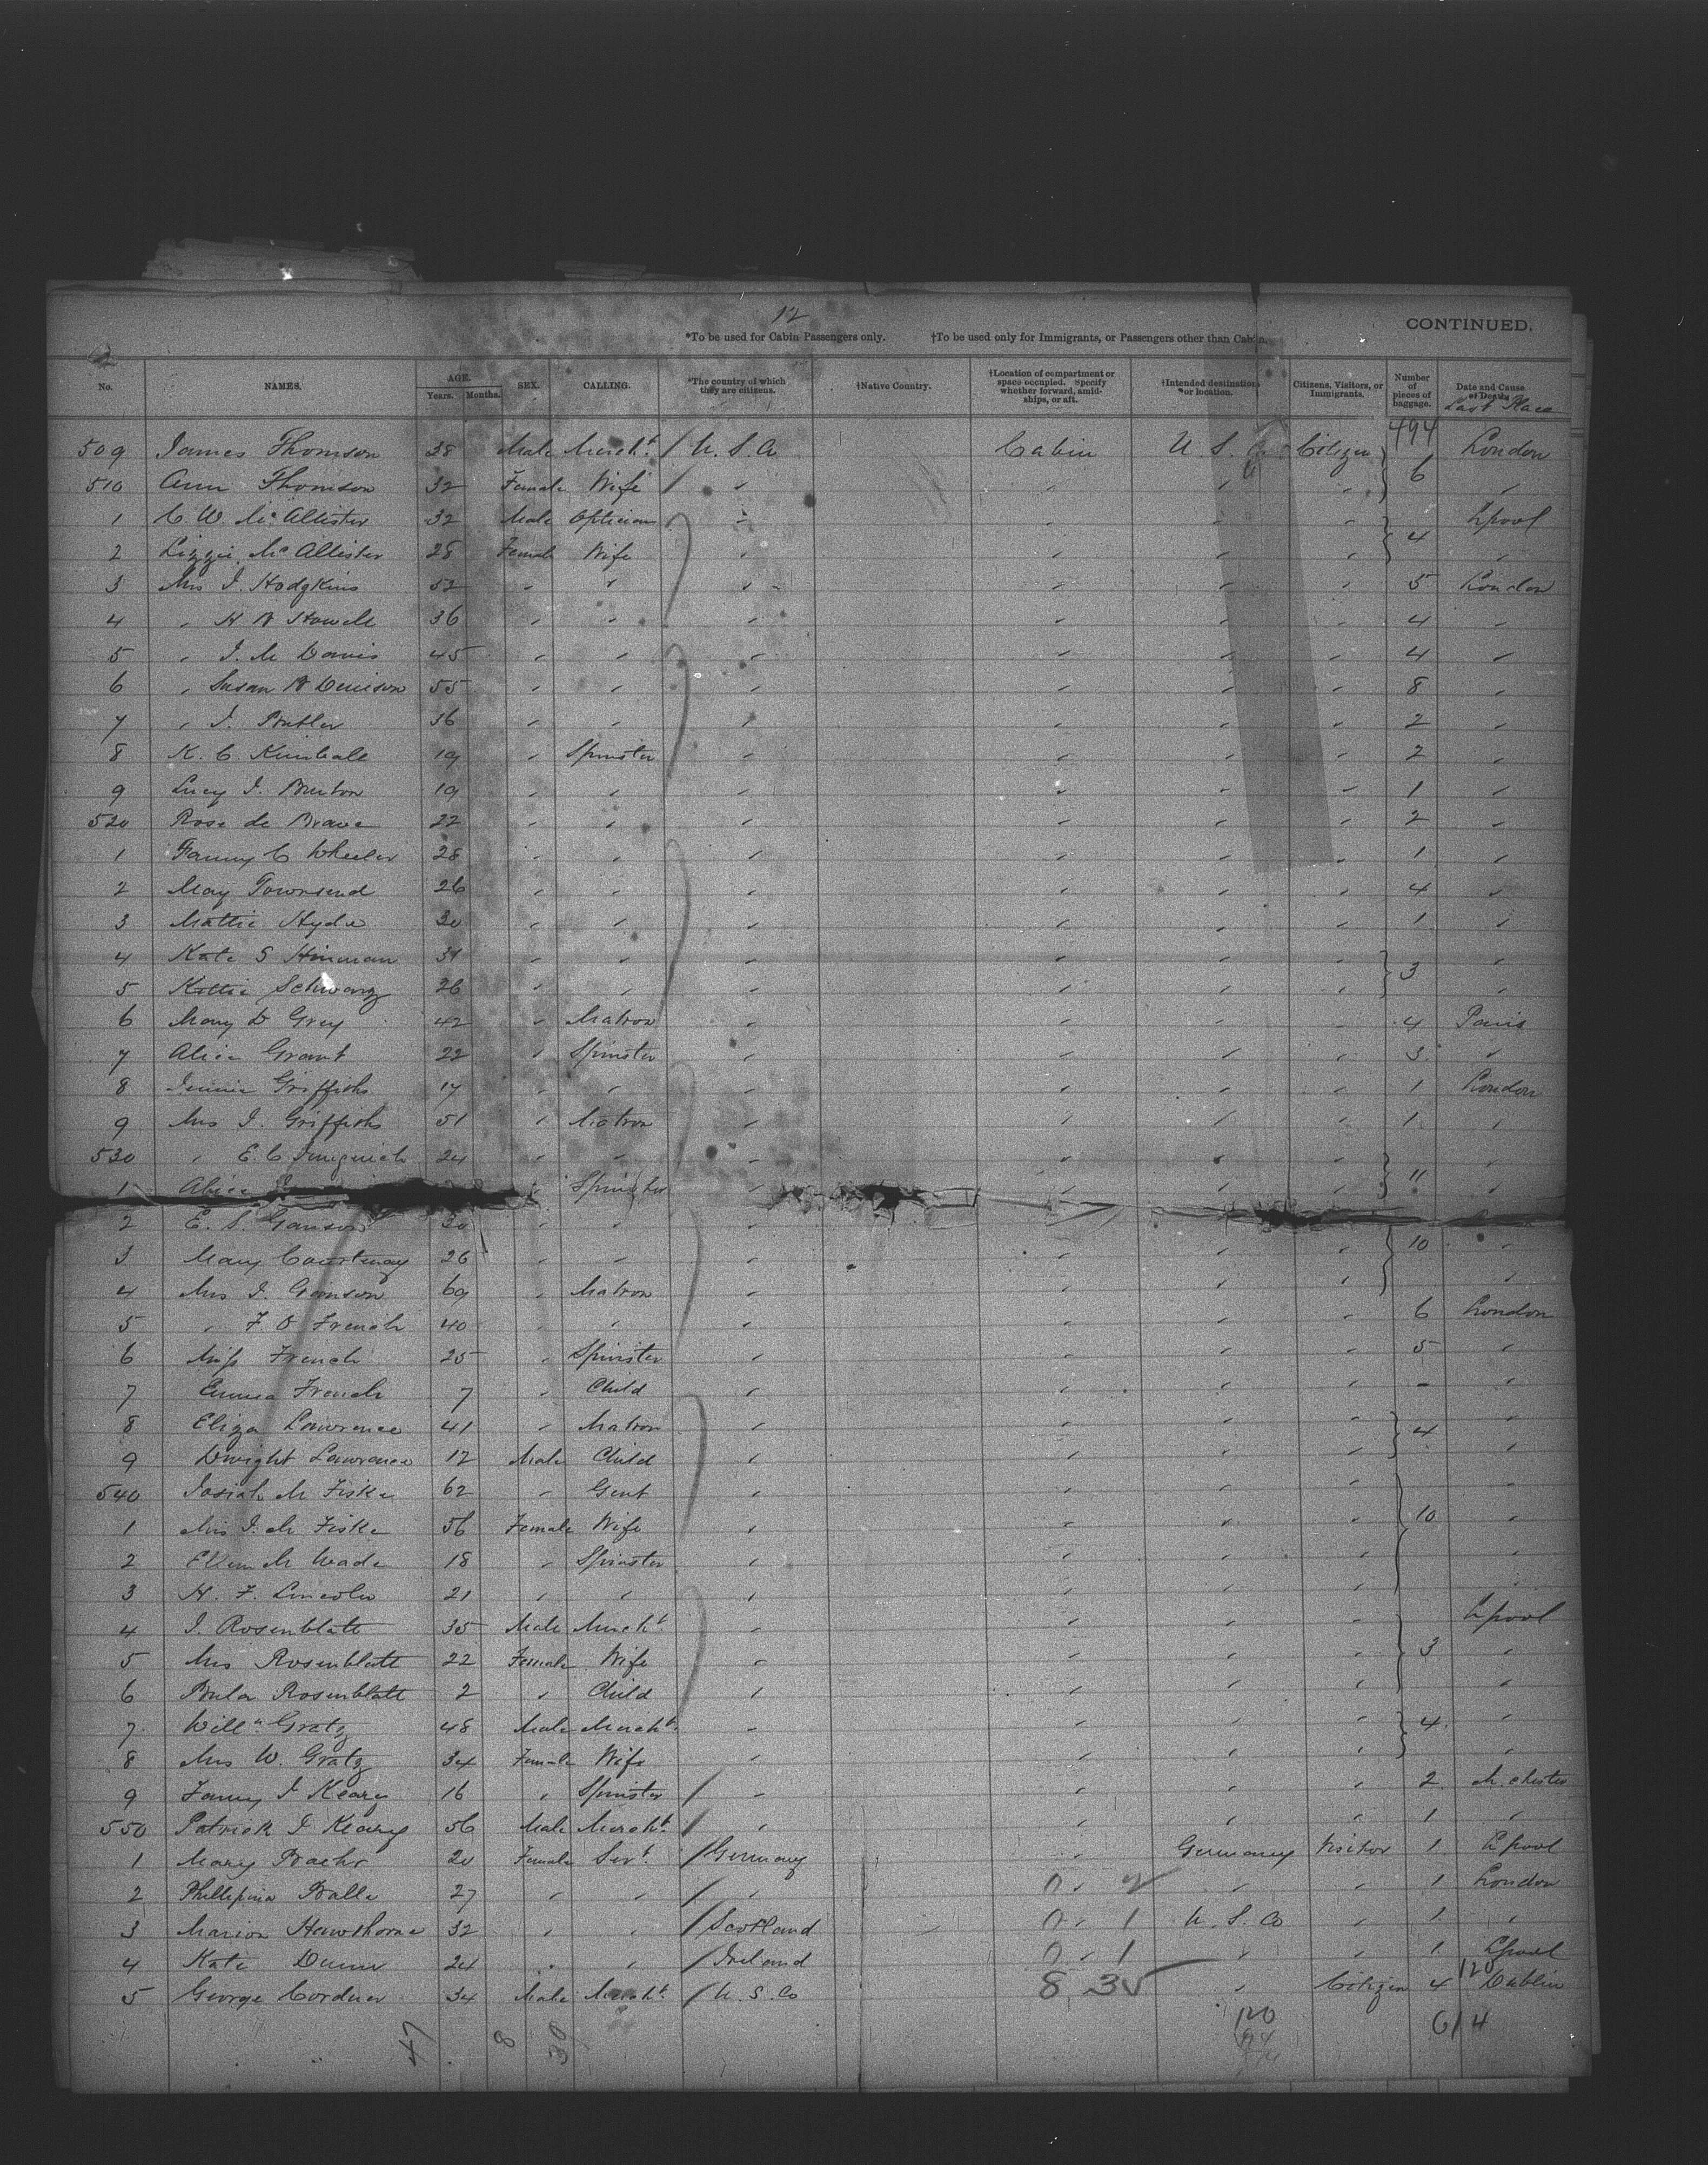 12
CONTINUED.
*To be used for Cabin Passengers only. †To be used only for Immigrants, or Passengers other than Cabin.
No. NAMES. AGE. Years. Months. SEX. CALLING. *The country of which they are citizens. †Native Country. †Location of compartment or space occupied. Specify whether forward, amidships, or aft. †Intended destination or location. Citizens, Visitors, or Immigrants. Number of pieces of baggage. Date and Cause of Death.
Last Place
494
509 James Thomson 38 Male Mercht. / U. S. A Cabin U. S. A Citizen 6 London
510 Ann Thomson 32 Female Wife / " " " " "
1 C W. McAllister 32 Male Optician " " " " 4 Lpool
2 Lizzie McAllister 28 Female Wife " " " " "
3 Mrs J. Hodgkins 52 " " " " " " 5 London
4 " H A Howell 36 " " " " " " 4 "
5 " J. M Davis 45 " " " " " " 4 "
6 " Susan A Denison 55 " " " " " " 8 "
7 " J. Butler 36 " " " " " " 2 "
8 K. C. Kimball 19 " Spinster " " " " 2 "
9 Lucy J. Burton 19 " " " " " " 1 "
520 Rose de Brave 22 " " " " " " 2 "
1 Fanny C Wheeler 28 " " " " " " 1 "
2 May Townsend 26 " " " " " " 4 "
3 Mattie Hyde 30 " " " " " " 1 "
4 Kate S Hinman 34 " " " " " " 3 "
5 Kittie Schwarz 26 " " " " " " "
6 Mary D Grey 42 " Matron " " " " 4 Paris
7 Alice Grant 22 " Spinster " " " " 3 "
8 Jennie Griffiths 17 " " " " " " 1 London
9 Mrs J. Griffiths 51 " Matron " " " " 1 "
530 " E. C 24 " " " " " " 11 "
1 Alice " Spinster " " " " "
2 E. S. Ganson 30 " " " " " " 10 "
3 Mary Courtenay 26 " " " " " " "
4 Mrs J. Ganson 69 " Matron " " " " "
5 " F O French 40 " " " " " " 6 London
6 Miss French 25 " Spinster " " " " 5 "
7 Emma French 7 " Child " " " " - "
8 Eliza Lawrence 41 " Matron " " " " 4 "
9 Dwight Lawrence 12 Male Child " " " " "
540 Josiah M Fiske 62 " Gent " " " " 10 "
1 Mrs J. M Fiske 56 Female Wife " " " " "
2 Ellen M Wade 18 " Spinster " " " " "
3 H. F. Lincoln 21 " " " " " " "
4 J. Rosenblatt 35 Male Mercht. " " " " 3 Lpool
5 Mrs Rosenblatt 22 Female Wife " " " " "
6 Bula Rosenblatt 2 " Child " " " " "
7 Willm. Gratz 48 Male Mercht. " " " " 4 "
8 Mrs W. Gratz 34 Female Wife " " " " "
9 Fanny J Keary 16 " Spinster / " " " " 2 M.chester
550 Patrick J Keary 56 Male Mercht. / " " " " 1 "
1 Mary Bachr 20 Female Servt. / Germany " Germany Visitor 1 Lpool
2 Phillipina Balle 27 " " / " " " " 1 London
3 Marion Hawthorne 32 " " / Scotland 0 . 1 U. S. A " 1 "
4 Kate Dunn 24 " " / Ireland 0 . 1 " " 1 Lpool
5 George Cordner 34 Male Mercht. / U. S. A 8 35 " Citizen 4 Dublin
120
47 8 30 120 614
494